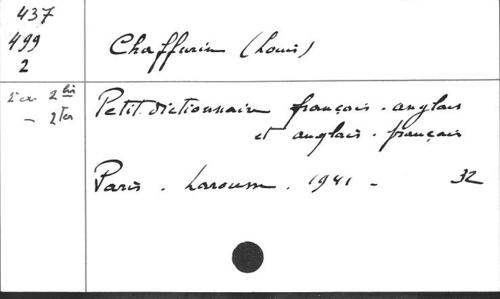 437
499
2
Chaffurin (Louis)
2 bis
- 2 Ter
Petit dictionnaire français-anglais
et anglais-français
Paris. Larousse. 1941 - 32